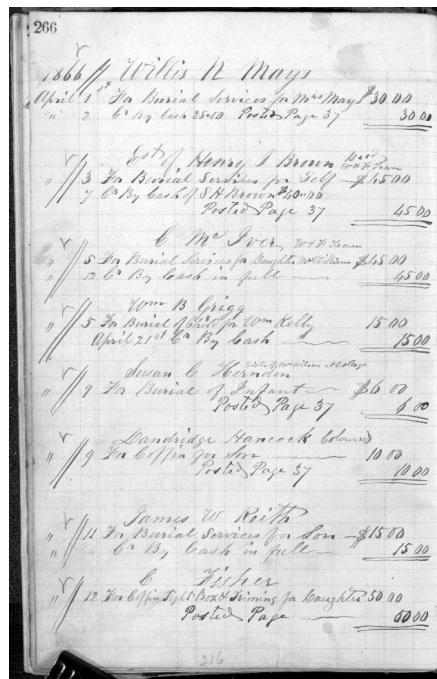 266
1866 // Willis N Mays
April 1st For Burial Services for Mrs Mays $30 00
" 2 Cr By Cash 25.00 Posted Page 37 30 00
Est of Henry I Brown
" 3 For Burial Services for Self $45 00
7 Cr By Cash of S H Brown $40.00
Posted Page 37 45 00
C Mc Iver
" 5 For Burial Services for Daughter $45 00
" 12 Cr By Cash in full 45 00
Wm B Grigg
" 5 For Burial of Child for Wm Kelly 15 00
April 21st Cr By Cash 15 00
Susan C Herndon
" 9 For Burial of Infant $6 00
Posted Page 37 6 00
Dandridge Hancock Coloured
" 9 For Coffin for Son 10 00
Posted Page 37 10 00
James W Keith
" 11 For Burial Services for Son $15 00
" " Cr By Cash in full 15 00
C Fisher
" 12 For Coffin Tight Box & Trimming for Daughter 50 00
Posted Page 50 00
216